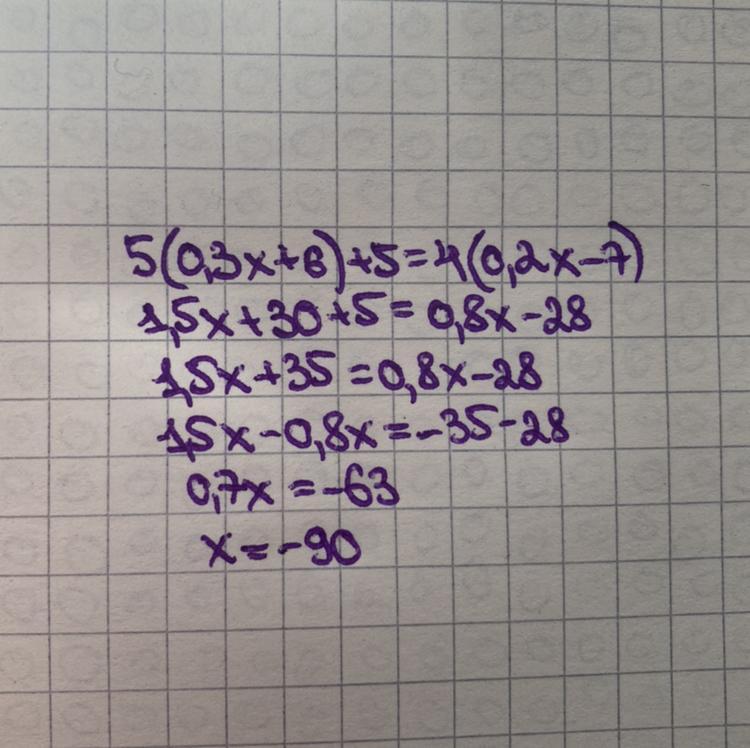 5(0,3x+6)+5=4(0,2x-7)
1,5x+30+5=0,8x-28
1,5x+35=0,8x-28
1,5x-0,8x=-35-28
0,7x=-63
x=-90